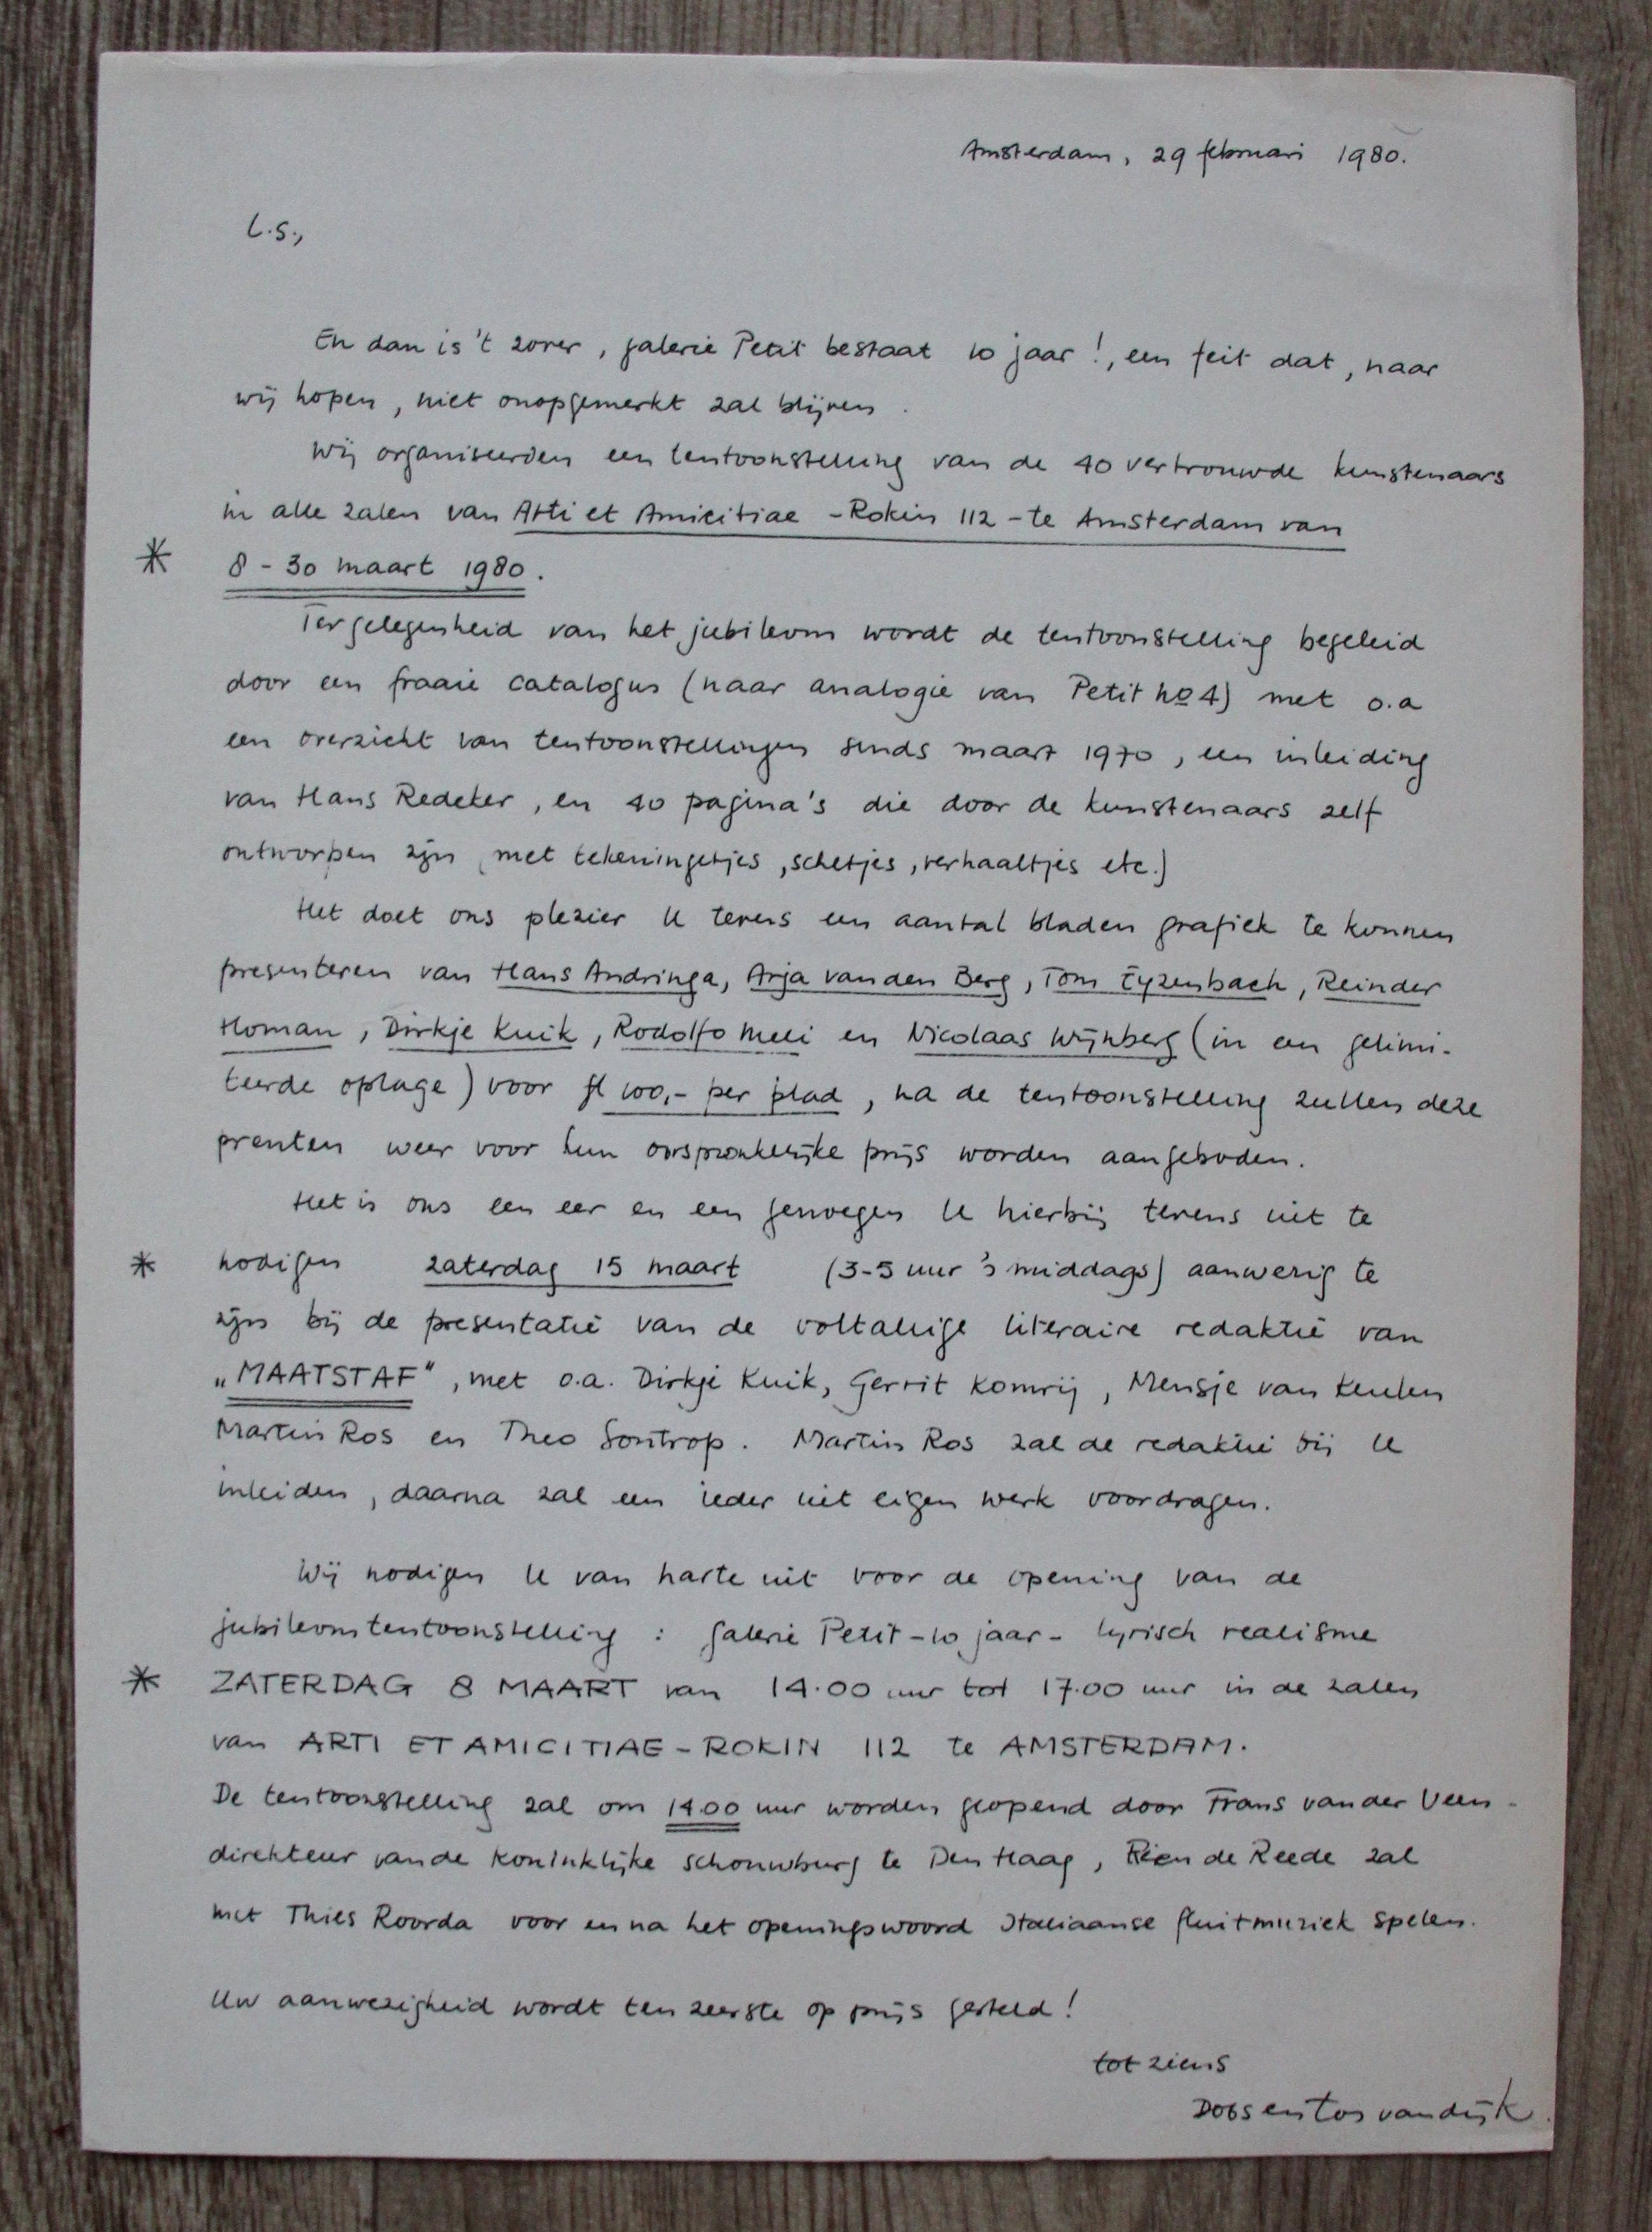 Amsterdam, 29 februari 1980.
L.S.,
En dan is 't zover, galerie Petit bestaat 10 jaar!, een feit dat, naar
wij hopen, niet onopgemerkt zal blijven.
Wij organiseerden een tentoonstelling van de 40 vertrouwde kunstenaars
in alle zalen van Arti et Amicitiae - Rokin 112 - te Amsterdam van
* 8 - 30 maart 1980.
Ter gelegenheid van het jubileum wordt de tentoonstelling begeleid
door een fraaie catalogus (naar analogie van Petit no 4) met o.a
een overzicht van tentoonstellingen sinds maart 1970, een inleiding
van Hans Redeker, en 40 pagina's die door de kunstenaars zelf
ontworpen zijn (met tekeningetjes, schetjes, verhaaltjes etc.)
Het doet ons plezier U tevens een aantal bladen grafiek te kunnen
presenteren van Hans Andringa, Arja van den Berg, Tom Eyzenbach, Reinder
Homan, Dirkje Kuik, Rodolfo Meli en Nicolaas Wijnberg (in een gelimi-
teerde oplage) voor fl 100,- per blad, na de tentoonstelling zullen deze
prenten weer voor hun oorspronkelijke prijs worden aangeboden.
Het is ons een eer en een genoegen U hierbij tevens uit te
* nodigen zaterdag 15 maart (3-5 uur 's middags) aanwezig te
zijn bij de presentatie van de voltallige literaire redaktie van
„MAATSTAF", met o.a. Dirkje Kuik, Gerrit Komrij, Mensje van Keulen
Martin Ros en Theo Sontrop. Martin Ros zal de redaktie bij U
inleiden, daarna zal een ieder uit eigen werk voordragen.
Wij nodigen U van harte uit voor de opening van de
jubileumtentoonstelling : galerie Petit - 10 jaar - lyrisch realisme
* ZATERDAG 8 MAART van 14.00 uur tot 17.00 uur in de zalen
van ARTI ET AMICITIAE - ROKIN 112 te AMSTERDAM.
De tentoonstelling zal om 14.00 uur worden geopend door Frans van der Veen -
direkteur van de Koninklijke schouwburg te Den Haag, Rien de Reede zal
met Thies Roorda voor en na het openingswoord Italiaanse fluitmuziek spelen.
Uw aanwezigheid wordt ten zeerste op prijs gesteld!
tot ziens
en van dijk.